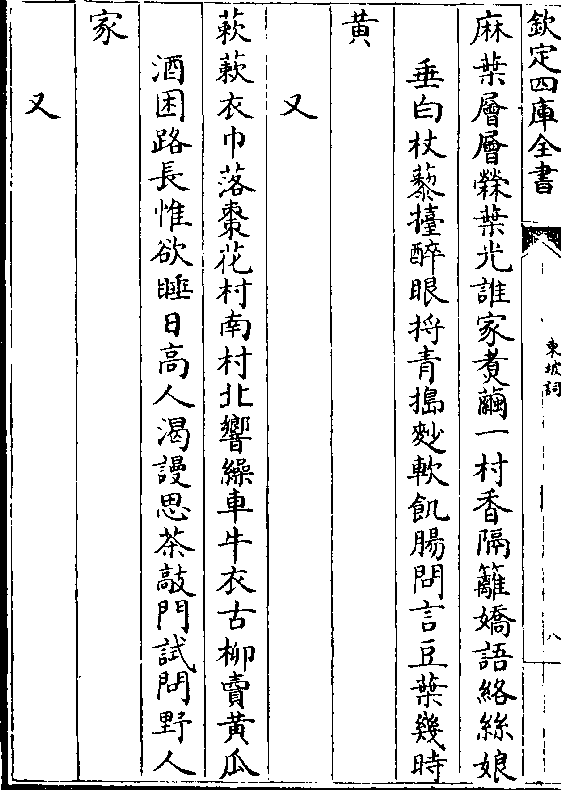 欽定四庫全書
東坡詞
八
麻葉層層檾葉光誰家煑繭一村香隔籬嬌語絡絲娘
垂白杖藜擡醉眼捋青搗麨軟飢腸問言豆葉幾時
黄
又
蔌蔌衣巾落棗花村南村北響繰車牛衣古柳賣黄瓜
酒困路長惟欲睡日高人渴謾思茶敲門試問野人
家
又